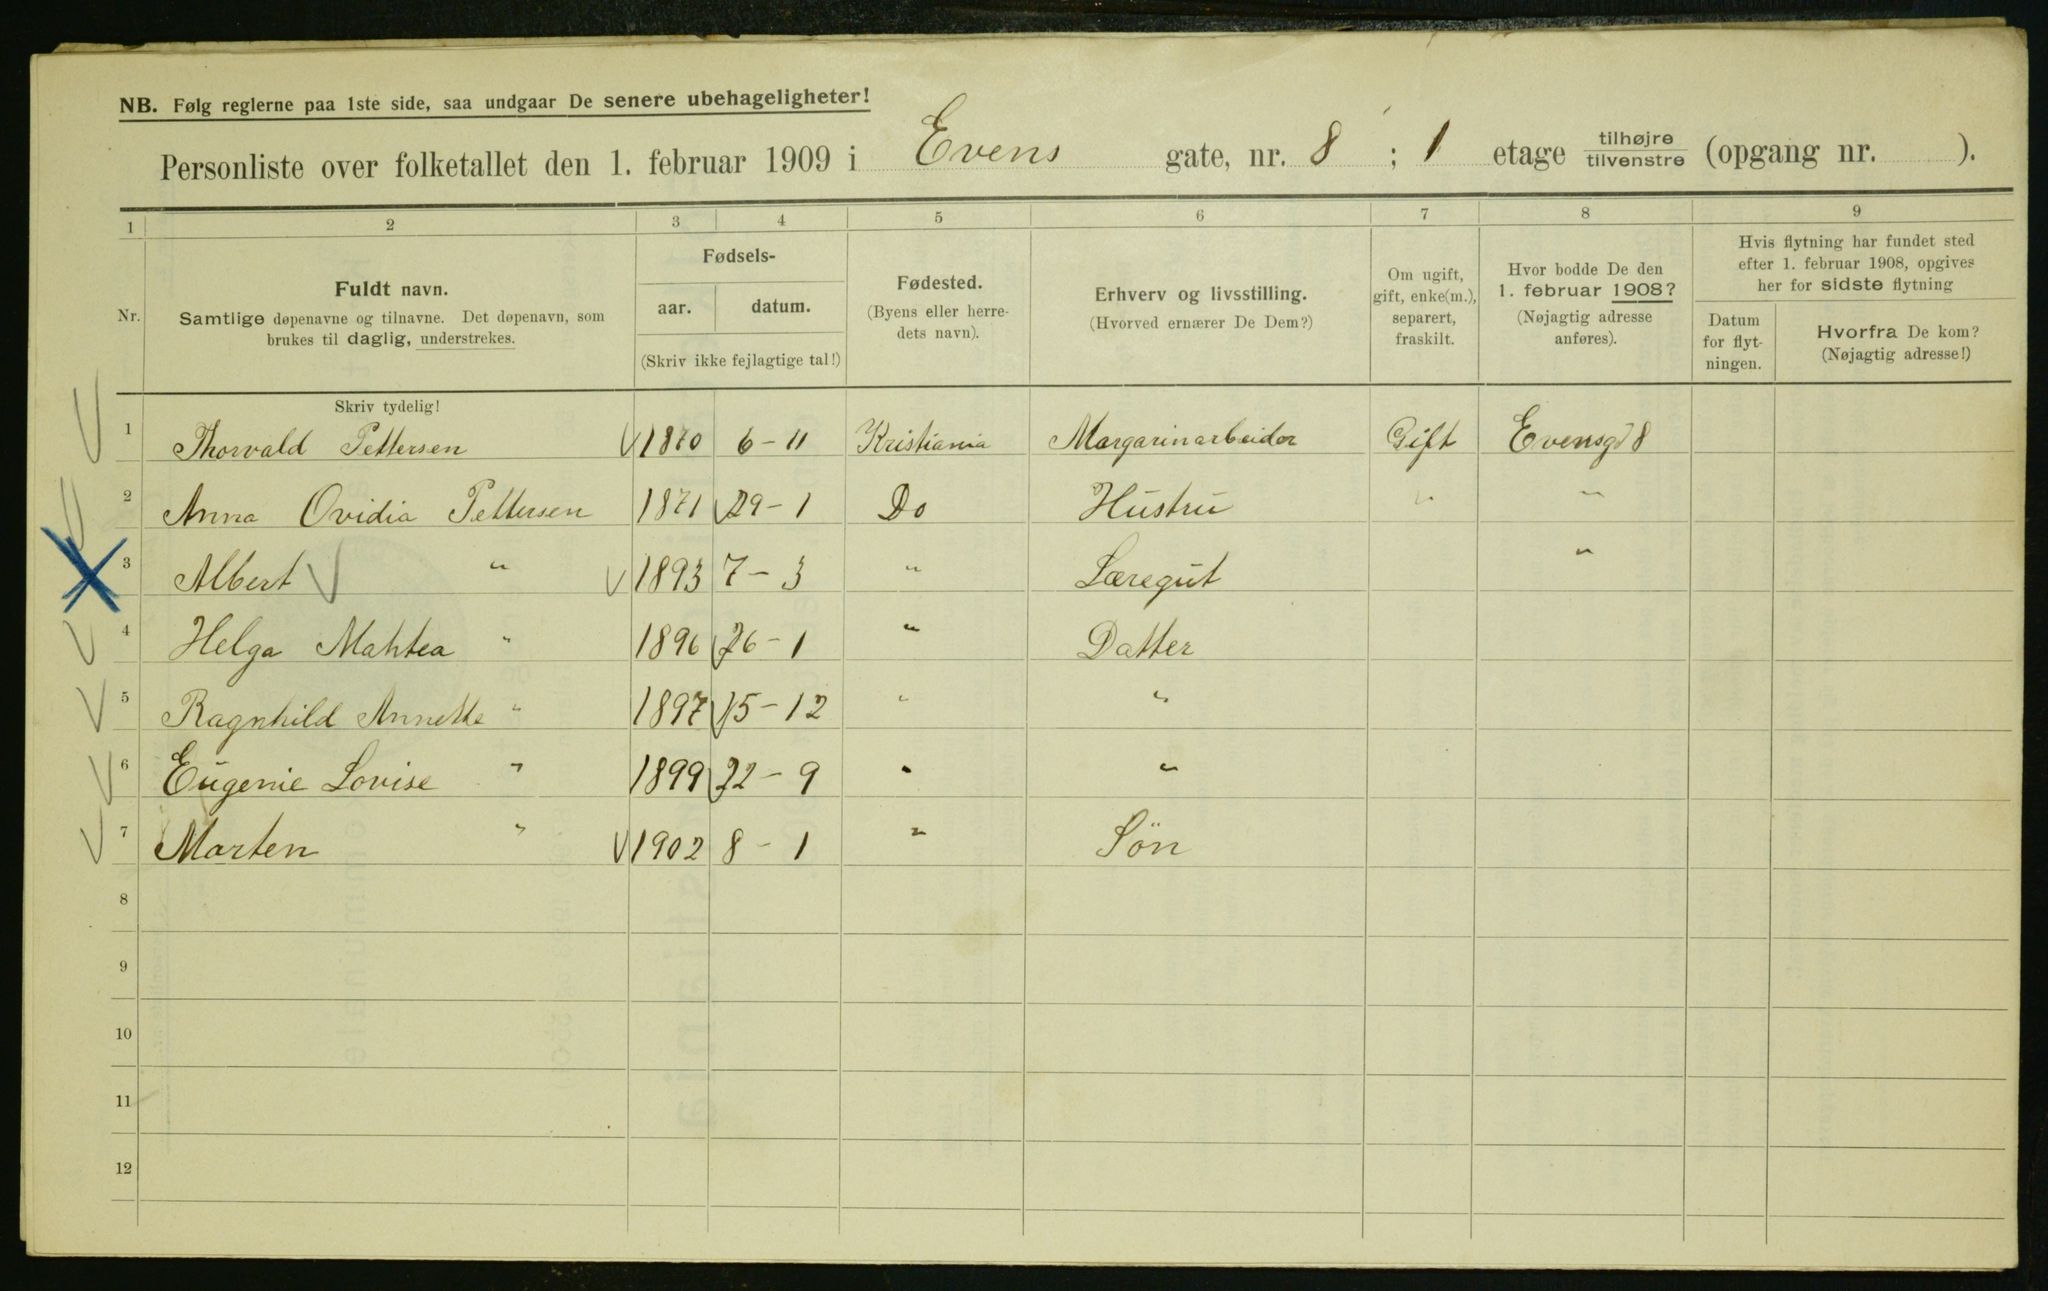 NB. Følg reglerne paa 1ste side, saa undgaar De senere ubehageligheter!
Personliste over folketallet den 1. februar 1909 i Evens gate, nr. 8 ; 1 etage tilhøjre tilvenstre (opgang nr. ).
1 2 3 4 5 6 7 8 9
Nr.
Fuldt navn.
Samtlige døpenavne og tilnavne. Det døpenavn, som
brukes til daglig, understrekes.
Fødsels-
aar. datum.
(Skriv ikke fejlagtige tal!)
Fødested.
(Byens eller herre-
dets navn).
Erhverv og livsstilling.
(Hvorved ernærer De Dem?)
Om ugift,
gift, enke(m.),
separert,
fraskilt.
Hvor bodde De den
1. februar 1908?
(Nøjagtig adresse
anføres).
Hvis flytning har fundet sted
efter 1. februar 1908, opgives
her for sidste flytning
Datum
for flyt-
ningen.
Hvorfra De kom?
(Nøjagtig adresse!)
Skriv tydelig!
1 Thorvald Pettersen 1870 6-11 Kristiania Margarinarbeider Gift Evensgd 8
2 Anna Ovidia Pettersen 1871 29-1 Do Hustru " "
3 Albert " 1893 7-3 " Læregut "
4 Helga Mahtea " 1896 26-1 " Datter
5 Ragnhild Annette " 1897 15-12 " "
6 Eugenie Lovise " 1899 22-9 " "
7 Marten " 1902 8-1 " Søn
8
9
10
11
12